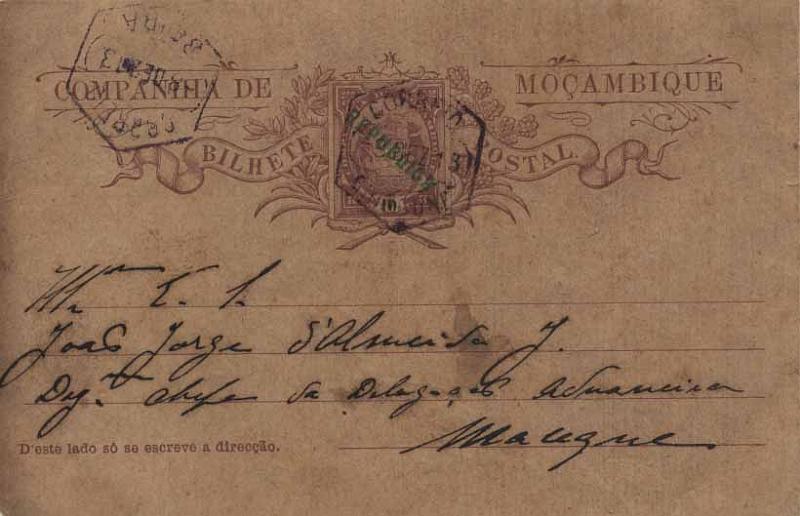 COMPANHIA DE MOÇAMBIQUE
BILHETE POSTAL
CORREIO
REPUBLICA
10
BEIRA
Illmo E. S.
João Jorge d'Almeida J.
Dig.mo chefe da Delegação Aduaneira
Macequece
D'este lado só se escreve a direcção.